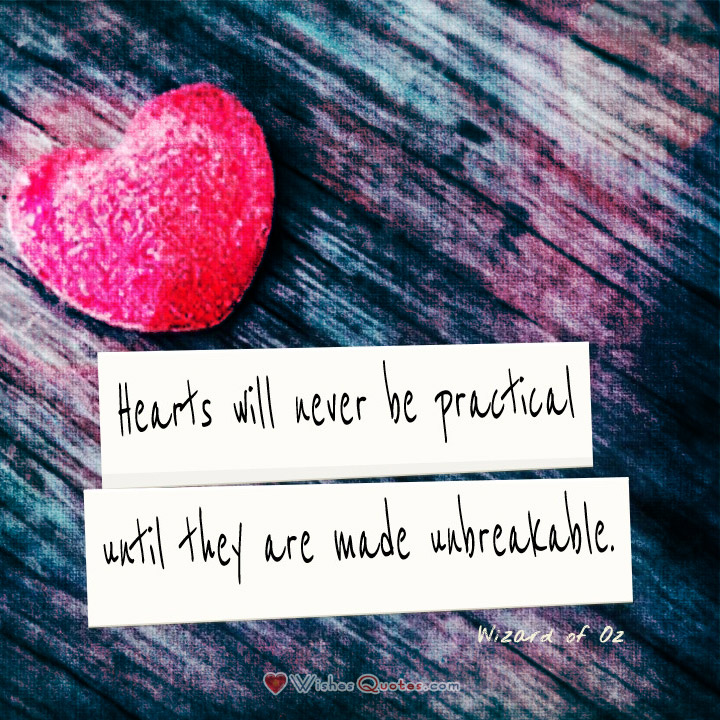 Hearts will never be practical
until they are made unbreakable.
Wizard of Oz
WishesQuotes.com